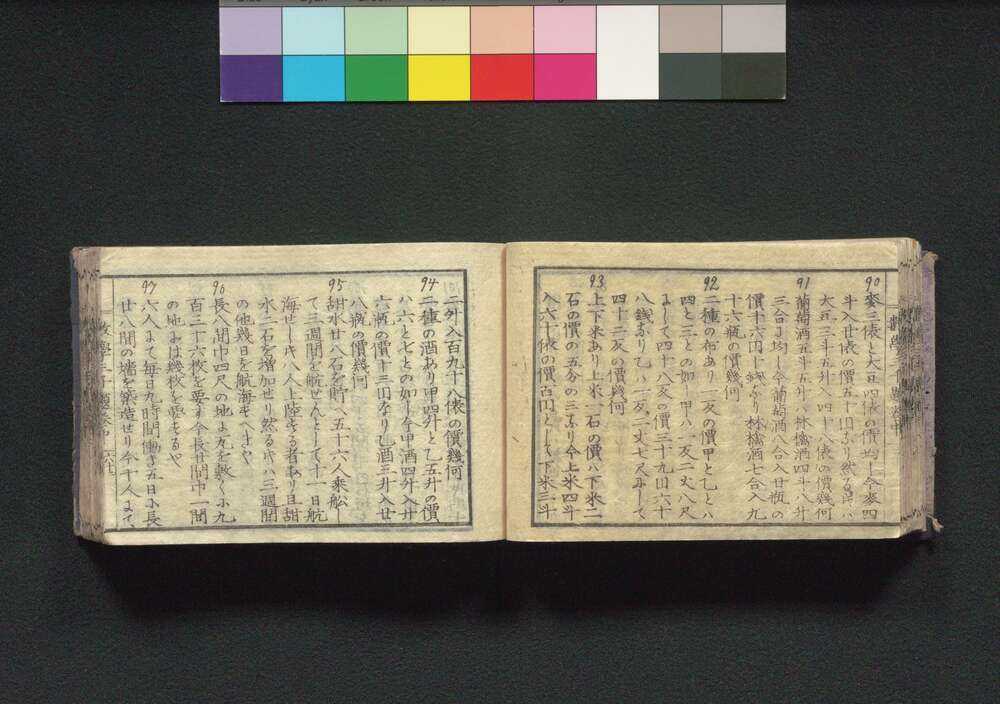 90
麥三俵と大豆四俵の價均し今麥四
斗入廿俵の價五十円なり然る時ハ
大豆三斗五升入四十八俵の價幾何
91
葡萄酒五斗五升ハ林檎酒四斗八升
三合に均し今葡萄酒八合入廿瓶の
價十六円 なり林檎酒七合入九
十六瓶の價幾何
92
二種の布あり一反の價甲と乙とハ
四と三との如し甲ハ一反二丈八尺
にして四十八反の價三十九円六十
八銭なり乙ハ一反二丈七尺にして
四十二反の價幾何
93
上下米あり上米一石の價ハ下米二
石の價の五分の三なり今上米四斗
入六十俵の價百円として下米三斗
94
二升入百九十八俵の價幾何
二種の酒あり甲四升と乙五升の價
ハ六と七との如し今甲酒四升入廿
六瓶の價十三円なり乙酒三升入廿
八瓶の價幾何
95
甜水廿八石を貯へ五十六人乗船し
て三週間を航せんとして十一日航
海せし時八人上陸する者あり且甜
水二石を増加せり然る時ハ三週間
の他幾日を航海すへきや
96
長八間巾四尺の地に瓦を敷くに九
百三十六枚を要す今長廿間巾一間
の地には幾枚を要するや
97
六人にて毎日九時間働き五日に長
廿八間の墻を築造せり今十人にて